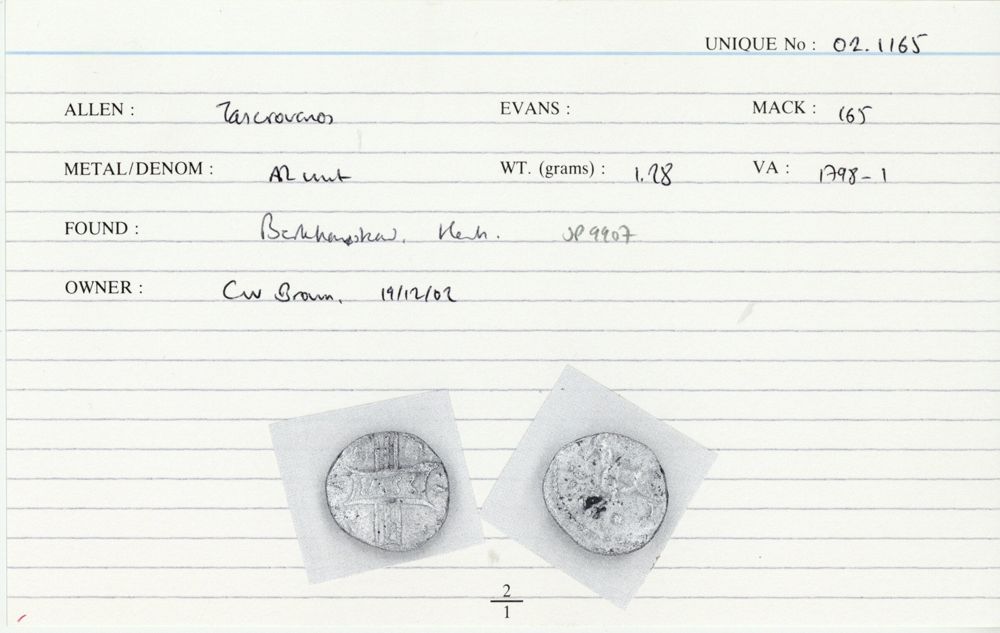 UNIQUE No : 02.1165
ALLEN : Tasciovanos EVANS : MACK : 165
METAL/DENOM : AR unit WT. (grams) : 1.28 VA : 1798-1
FOUND : Berkhamsted, Herts. JP 9907
OWNER : CW Brown, 19/12/02
2
1